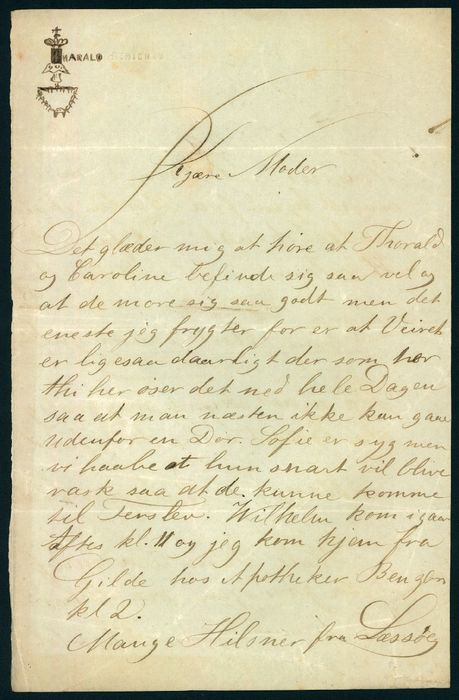 HARALD
Kjære Moder
Det glæder mig at høre at Thorald
og Caroline befinde sig saa vel og
at de more sig saa godt men det
eneste jeg frygter for er at Veiret
er ligesaa daarligt der som her
thi her øser det ned hele Dagen
saa at man næsten ikke kan gaae
udenfor en Dør. Sofie er syg men
vi haabe at hun snart vil blive
rask saa at de kunne komme
til Terslev. Wilhelm kom igaar
Aftes kl. 11 og jeg kom hjem fra
Gilde hos Apotheker Benzon
kl 2.
Mange Hilsner fra Læssøe